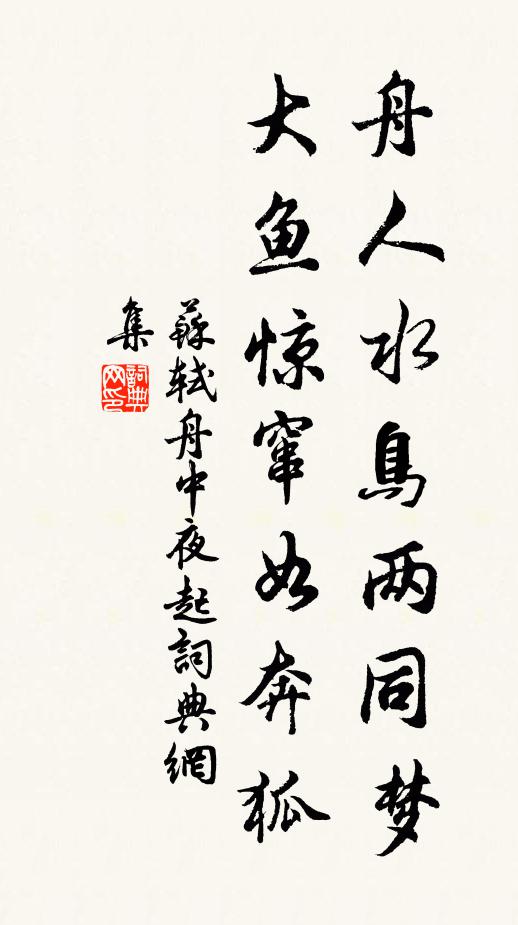 舟人水鳥两同梦
大鱼惊窜如奔狐
蘇軾舟中夜起詞典網
集
詞典
网印